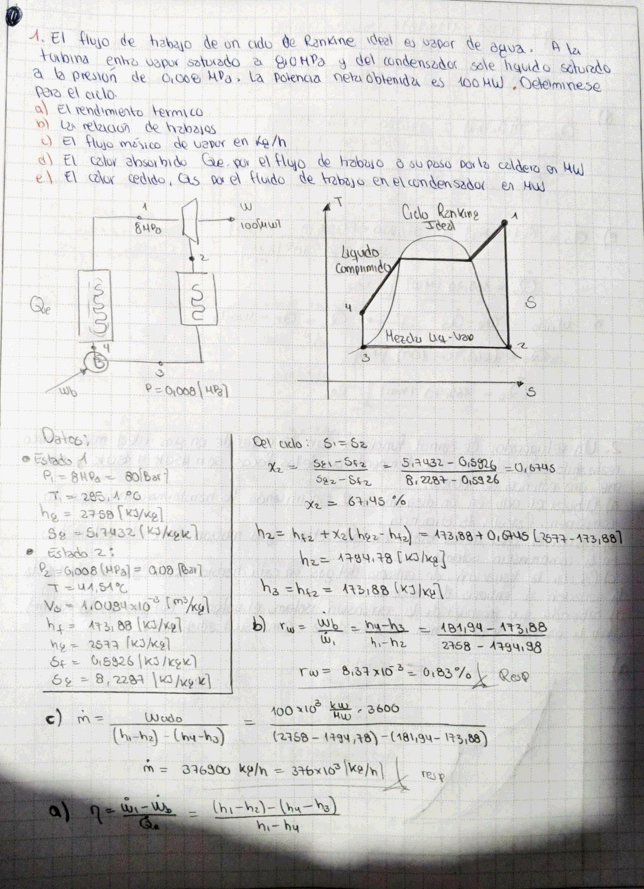 1. El flujo de trabajo de un ciclo de Rankine ideal es vapor de agua. A la
turbina entra vapor saturado a 8,0 MPa y del condensador sale liquido saturado
a la presión de 0,008 MPa. La potencia neta obtenida es 100 MW. Determinese
para el ciclo
a) El rendimiento termico
b) La relación de trabajos
c) El flujo másico de vapor en kg/h
d) El calor absorbido Qe. por el flujo de trabajo a su paso por la caldera en MW
e) El calor cedido, Qs por el fluido de trabajo en el condensador en MW
1
8MPa
W
100[MW]
2
Qe
4
B
3
Wb
P = 0,008 [MPa]
T
Ciclo Rankine
Ideal
1
Liquido
Comprimido
4
S
Mezcla Liq-Vap
3
2
S
Datos:
• Estado 1
P1 = 8MPa = 80[Bar]
T1 = 295,1 ºC
hg = 2758 [KJ/kg]
Sg = 5,7432 [KJ/kgK]
• Estado 2:
P2 = 0,008 [MPa] = 0,08 [Bar]
T = 41,51ºC
Vf = 1,0084x10⁻³ [m³/kg]
hf = 173,88 [KJ/kg]
hg = 2577 [KJ/kg]
Sf = 0,5926 [KJ/kgK]
Sg = 8,2287 [KJ/kgK]
Del ciclo: S1 = S2
x2 = (Sg1 - Sf2)/(Sg2 - Sf2) = (5,7432 - 0,5926)/(8,2287 - 0,5926) = 0,6745
x2 = 67,45 %
h2 = hf2 + x2 (hg2 - hf2) = 173,88 + 0,6745 [2577 - 173,88]
h2 = 1794,78 [KJ/kg]
h3 = hf2 = 173,88 [KJ/kg]
b) rw = Ẇb/Ẇ1 = (h4-h3)/(h1-h2) = (181,94 - 173,88)/(2758 - 1794,98)
rw = 8,37x10⁻³ = 0,83% Resp
c) ṁ = Wciclo/((h1-h2) - (h4-h3)) = (100x10³ kW/MW · 3600)/((2758 - 1794,78) - (181,94 - 173,88))
ṁ = 376900 kg/h = 376x10³ [kg/h] resp
a) η = (Ẇ1 - Ẇb)/Q̇e = ((h1-h2) - (h4-h3))/(h1-h4)